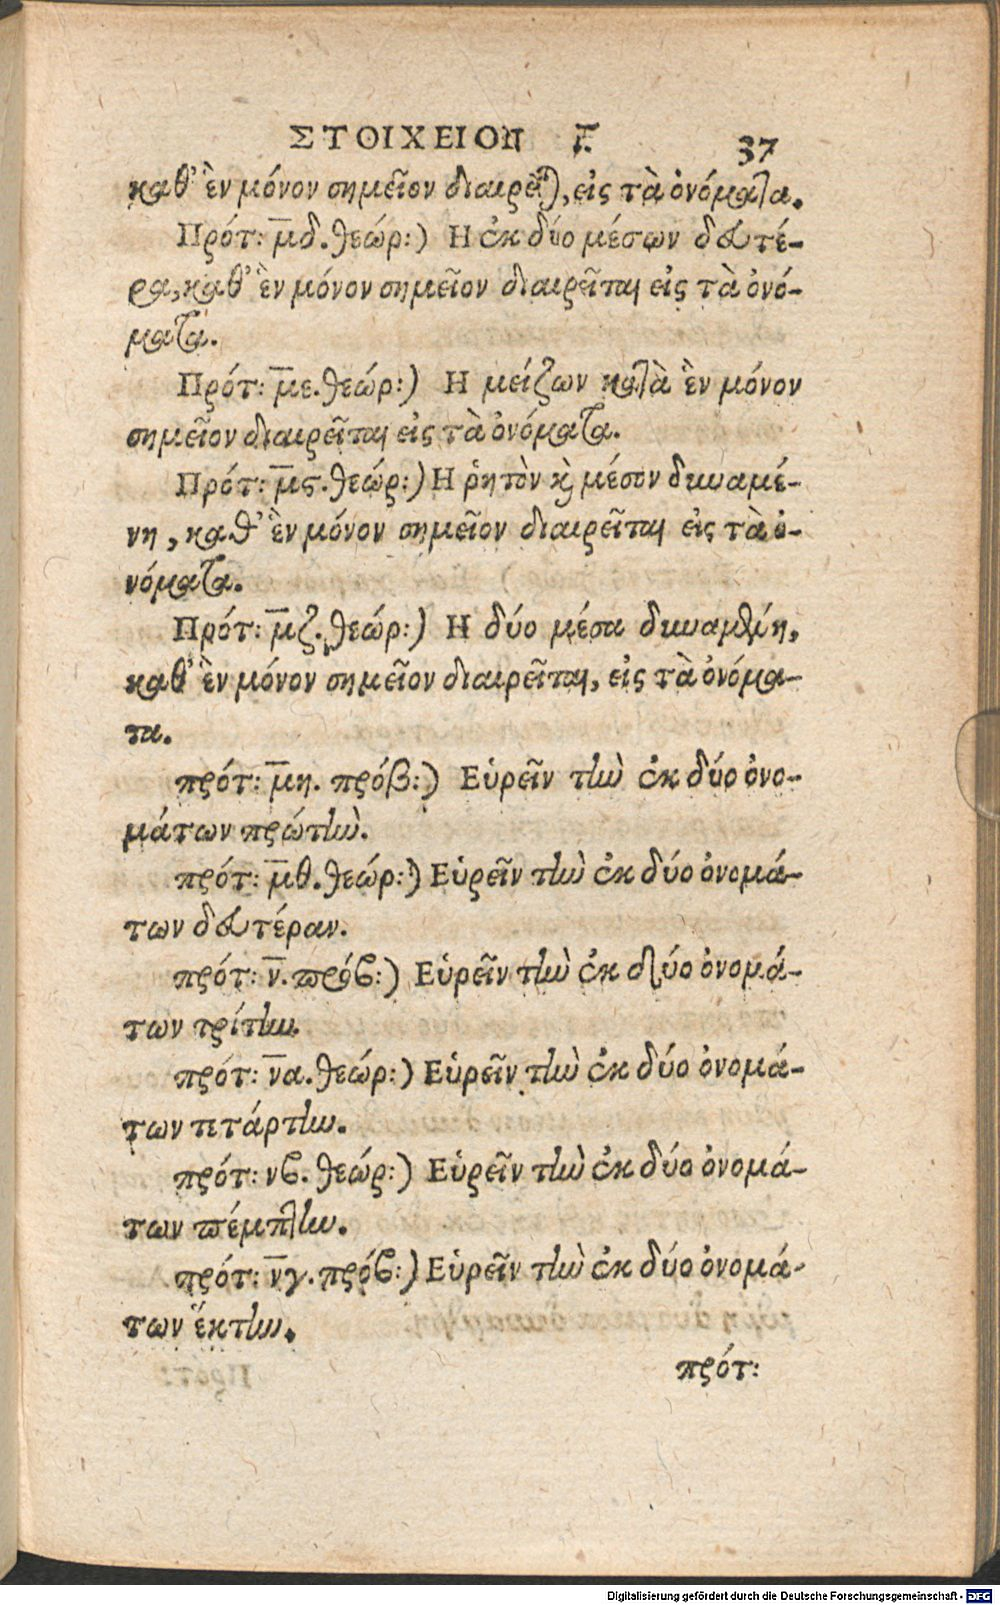 ΣΤΟΙΧΕΙΟΝ Ι. 37
καθ' ἓν μόνον σημεῖον διαιρεῖται, εἰς τὰ ὀνόματα.
Πρότ: μδ. θεώρ:) Η ἐκ δύο μέσων δευτέ-
ρα, καθ' ἓν μόνον σημεῖον διαιρεῖται εἰς τὰ ὀνό-
ματα.
Πρότ: με. θεώρ:) Η μείζων κατὰ ἓν μόνον
σημεῖον διαιρεῖται εἰς τὰ ὀνόματα.
Πρότ: μς. θεώρ:) Η ῥητὸν καὶ μέσον δυναμέ-
νη, καθ' ἓν μόνον σημεῖον διαιρεῖται εἰς τὰ ὀ-
νόματα.
Πρότ: μζ. θεώρ:) Η δύο μέσα δυναμένη,
καθ' ἓν μόνον σημεῖον διαιρεῖται, εἰς τὰ ὀνόμα-
τα.
πρότ: μη. πρόβ:) Εὑρεῖν τὴν ἐκ δύο ὀνο-
μάτων πρώτην.
πρότ: μθ. θεώρ:) Εὑρεῖν τὴν ἐκ δύο ὀνομά-
των δευτέραν.
πρότ: ν. πρόβ:) Εὑρεῖν τὴν ἐκ δύο ὀνομά-
των τρίτην.
πρότ: να. θεώρ:) Εὑρεῖν τὴν ἐκ δύο ὀνομά-
των τετάρτην.
πρότ: νβ. θεώρ:) Εὑρεῖν τὴν ἐκ δύο ὀνομά-
των πέμπτην.
πρότ: νγ. πρόβ:) Εὑρεῖν τὴν ἐκ δύο ὀνομά-
των ἕκτην.
πρότ:
Digitalisierung gefördert durch die Deutsche Forschungsgemeinschaft - DFG